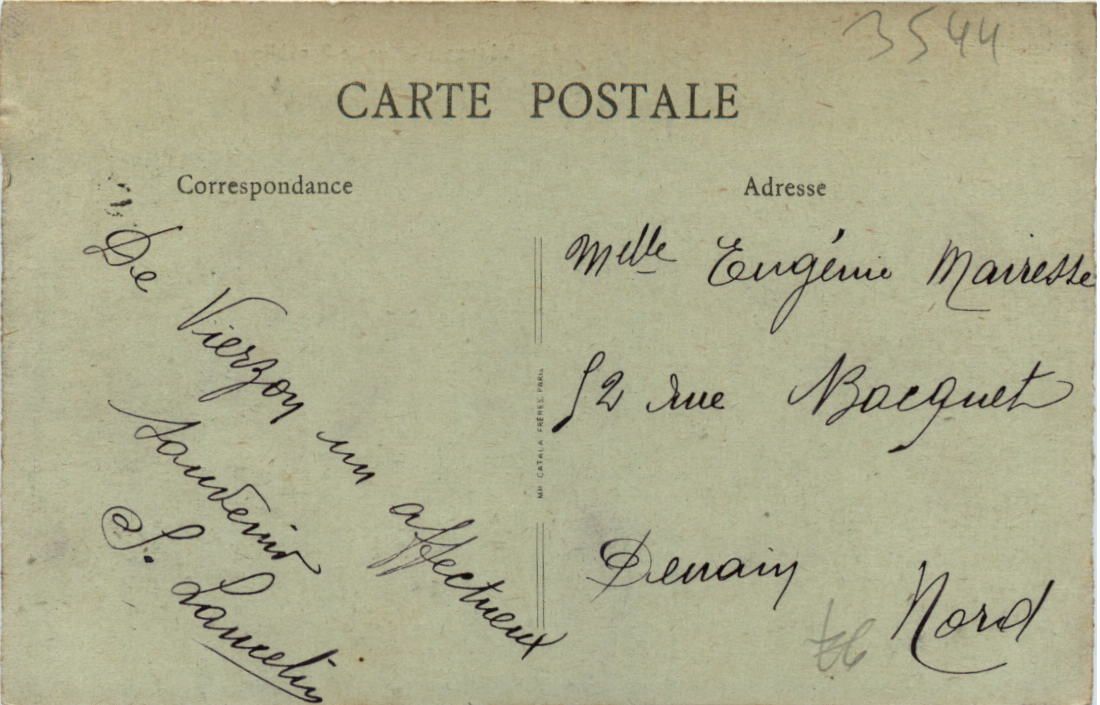 3544
CARTE POSTALE
Correspondance
De Vierzon un affectueux
souvenir
S. Lancelin
IMP. CATALA FRERES. PARIS
Adresse
Melle Eugénie Mairesse
52 rue Bacquet
Denain
Nord